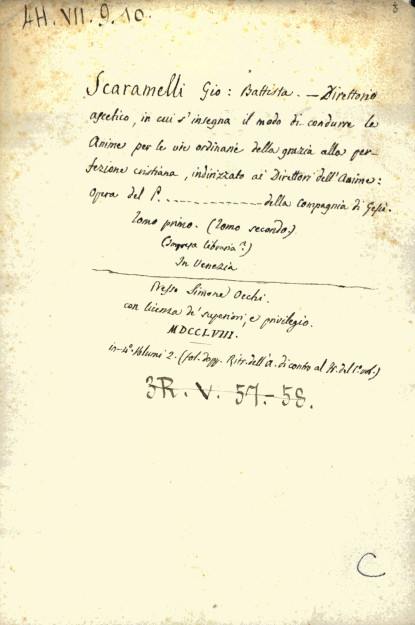 4H. VII. 9. 10.
8
Scaramelli Gio: Battista. — Direttorio
ascetico, in cui s'insegna il modo di condurre le
Anime per le vie ordinarie della grazia alla per-
fezione cristiana, indirizzato ai Direttori dell'Anime:
Opera del P. ............... della compagnia di Gesù.
Tomo primo. (Tomo secondo.)
(Impresa libraria)
In Venezia
Presso Simone Occhi.
con licenza de' superiori, e privilegio.
MDCCLVIII.
in-4° Volumi 2. (fol. dopp. Ritr. dell'A. di contro al fr. del 1° vol.)
3R. V. 57.-58.
C